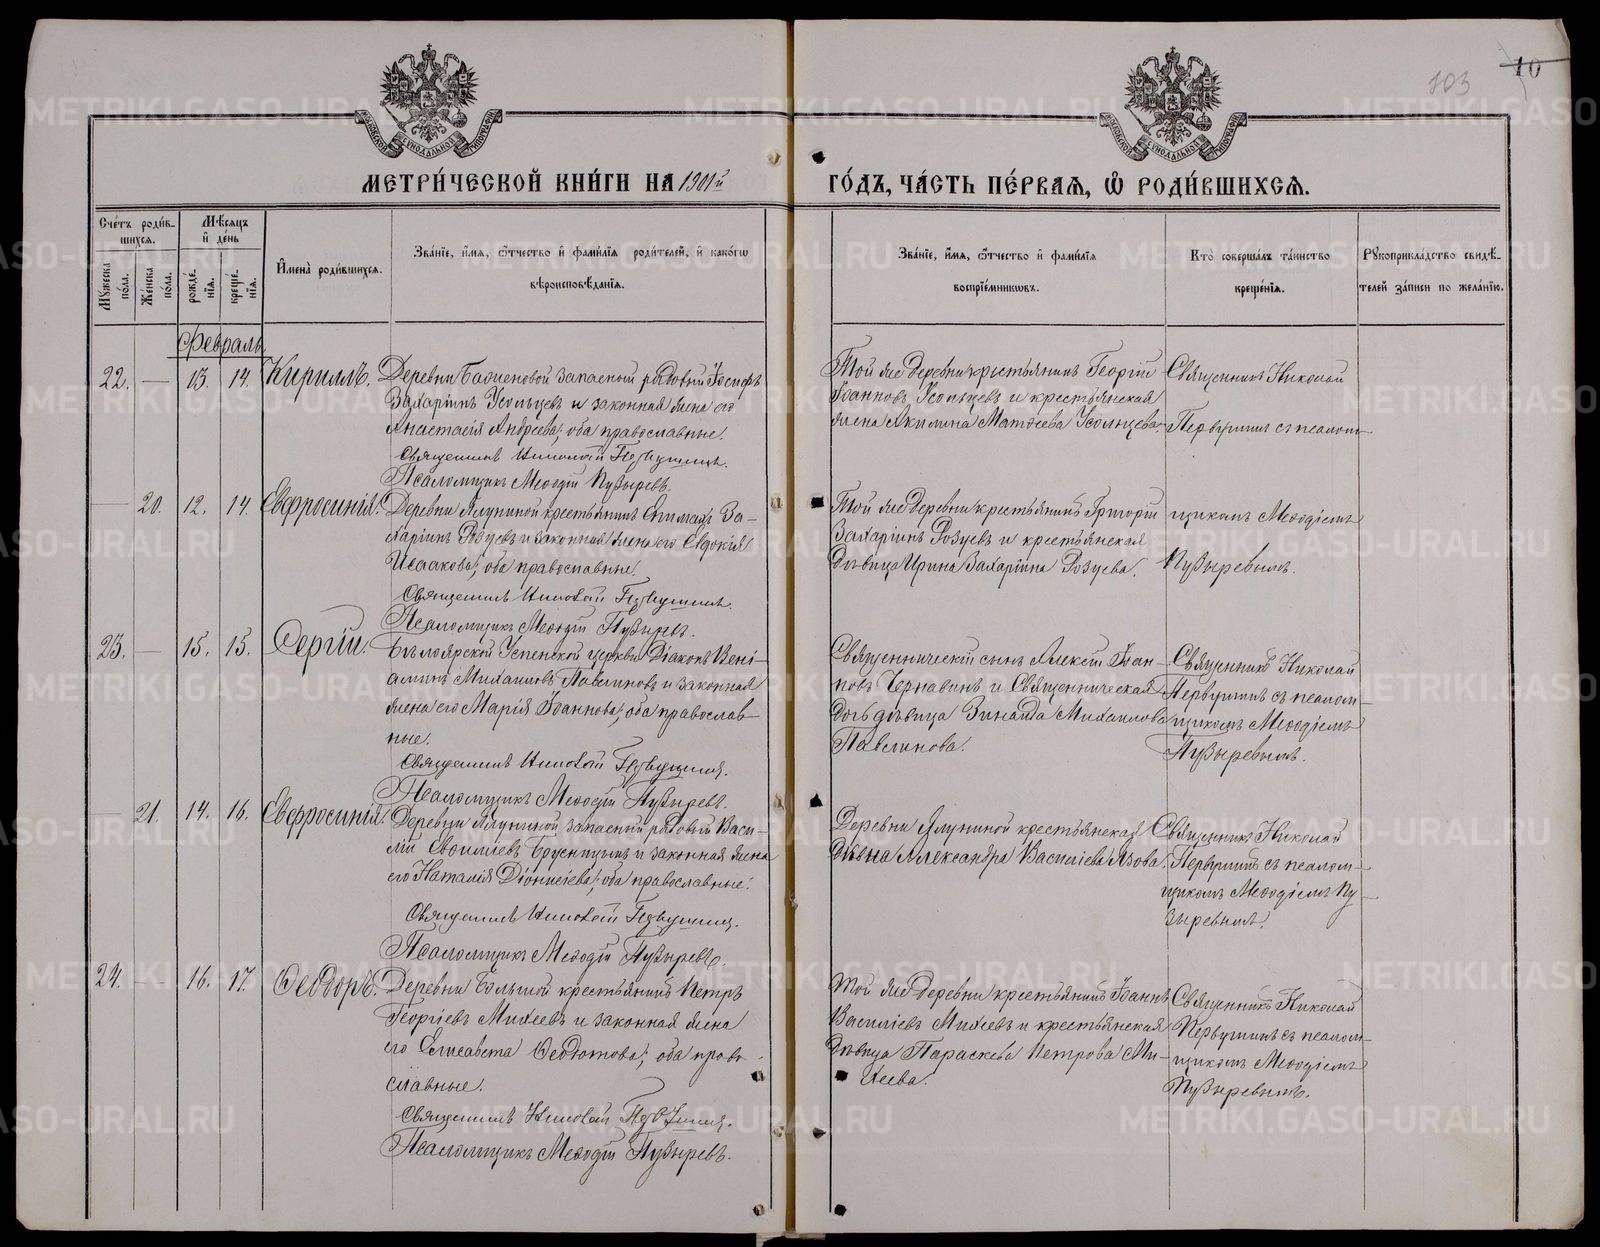 103
10
МЕТРИ́ЧЕСКОЙ КНИ́ГИ НА 1901й
ГО́ДЪ, ЧА́СТЬ ПЕ́РВАѦ, Ѡ҆ РОДИ́ВШИХСѦ.
Сче́тъ роди́в-
шихся.
Мѣ́сяцъ
и҆ де́нь
Мꙋ́жеска по́ла.
Же́нска по́ла.
рожде́нїя.
креще́нїя.
И҆мена̀ роди́вшихся.
Зва́нїе, и҆́мя, ѻ҆́тчество и҆ фами́лїя роди́телей, и҆ како́гѡ
вѣроисповѣ́данїя.
Зва́нїе, и҆́мя, ѻ҆́тчество и҆ фами́лїя
воспрїе́мниковъ.
Кто̀ соверша́лъ та́инство
креще́нїя.
Рꙋкоприкла́дство свидѣ́-
телей за́писи по жела́нїю.
Февраль
22. — 13. 14. Кириллъ. Деревни Баженовой запасный рядовый Іосифъ
Захаріинъ Усольцевъ и законная жена его
Анастасія Андреева; оба православные.
Священникъ Николай Первушинъ.
Псаломщикъ Меѳодій Пузыревъ.
Той же деревни крестьянинъ Георгій
Іоанновъ Усольцевъ и крестьянская
жена Акилина Матѳеева Усольцева.
Священникъ Николай
Первушинъ съ псалом-
щикомъ Меѳодіемъ
Пузыревымъ.
— 20. 12. 14. Евфросинія. Деревни Ялуниной крестьянинъ Епимахъ За-
харіинъ Розуевъ и законная жена его Евдокія
Исаакова; оба православные.
Священникъ Николай Первушинъ.
Псаломщикъ Меѳодій Пузыревъ.
Той же деревни крестьянинъ Григорій
Захаріинъ Розуевъ и крестьянская
дѣвица Ирина Захаріина Розуева.
23. — 15. 15. Сергій. Бѣлоярской Успенской церкви Діаконъ Вені-
аминъ Михаиловъ Павлиновъ и законная
жена его Марія Іоаннова; оба православ-
ные.
Священникъ Николай Первушинъ.
Псаломщикъ Меѳодій Пузыревъ.
Священническій сынъ Алексій Іоан-
новъ Чернавинъ и Священническая
дочь дѣвица Зинаида Михаилова
Павлинова.
Священникъ Николай
Первушинъ съ псалом-
щикомъ Меѳодіемъ
Пузыревымъ.
— 21. 14. 16. Евфросинія. Деревни Ялуниной запасный рядовый Васи-
лій Брусницынъ и законная жена
его Наталія Діонисіева; оба православные.
Священникъ Николай Первушинъ.
Псаломщикъ Меѳодій Пузыревъ.
Деревни Ялуниной крестьянская
дѣвица Александра Василіева Язова.
Священникъ Николай
Первушинъ съ псалом-
щикомъ Меѳодіемъ Пу-
зыревымъ.
24. — 16. 17. Ѳеодоръ. Деревни Большой крестьянинъ Петръ
Георгіевъ Михеевъ и законная жена
его Елисавета Ѳеодотова; оба право-
славные.
Священникъ Николай Первушинъ.
Псаломщикъ Меѳодій Пузыревъ.
Той же деревни крестьянинъ Іоаннъ
Василіевъ Михеевъ и крестьянская
дѣвица Параскева Петрова Ми-
хеева.
Священникъ Николай
Первушинъ съ псалом-
щикомъ Меѳодіемъ
Пузыревымъ.
METRIKI.GASO-URAL.RU